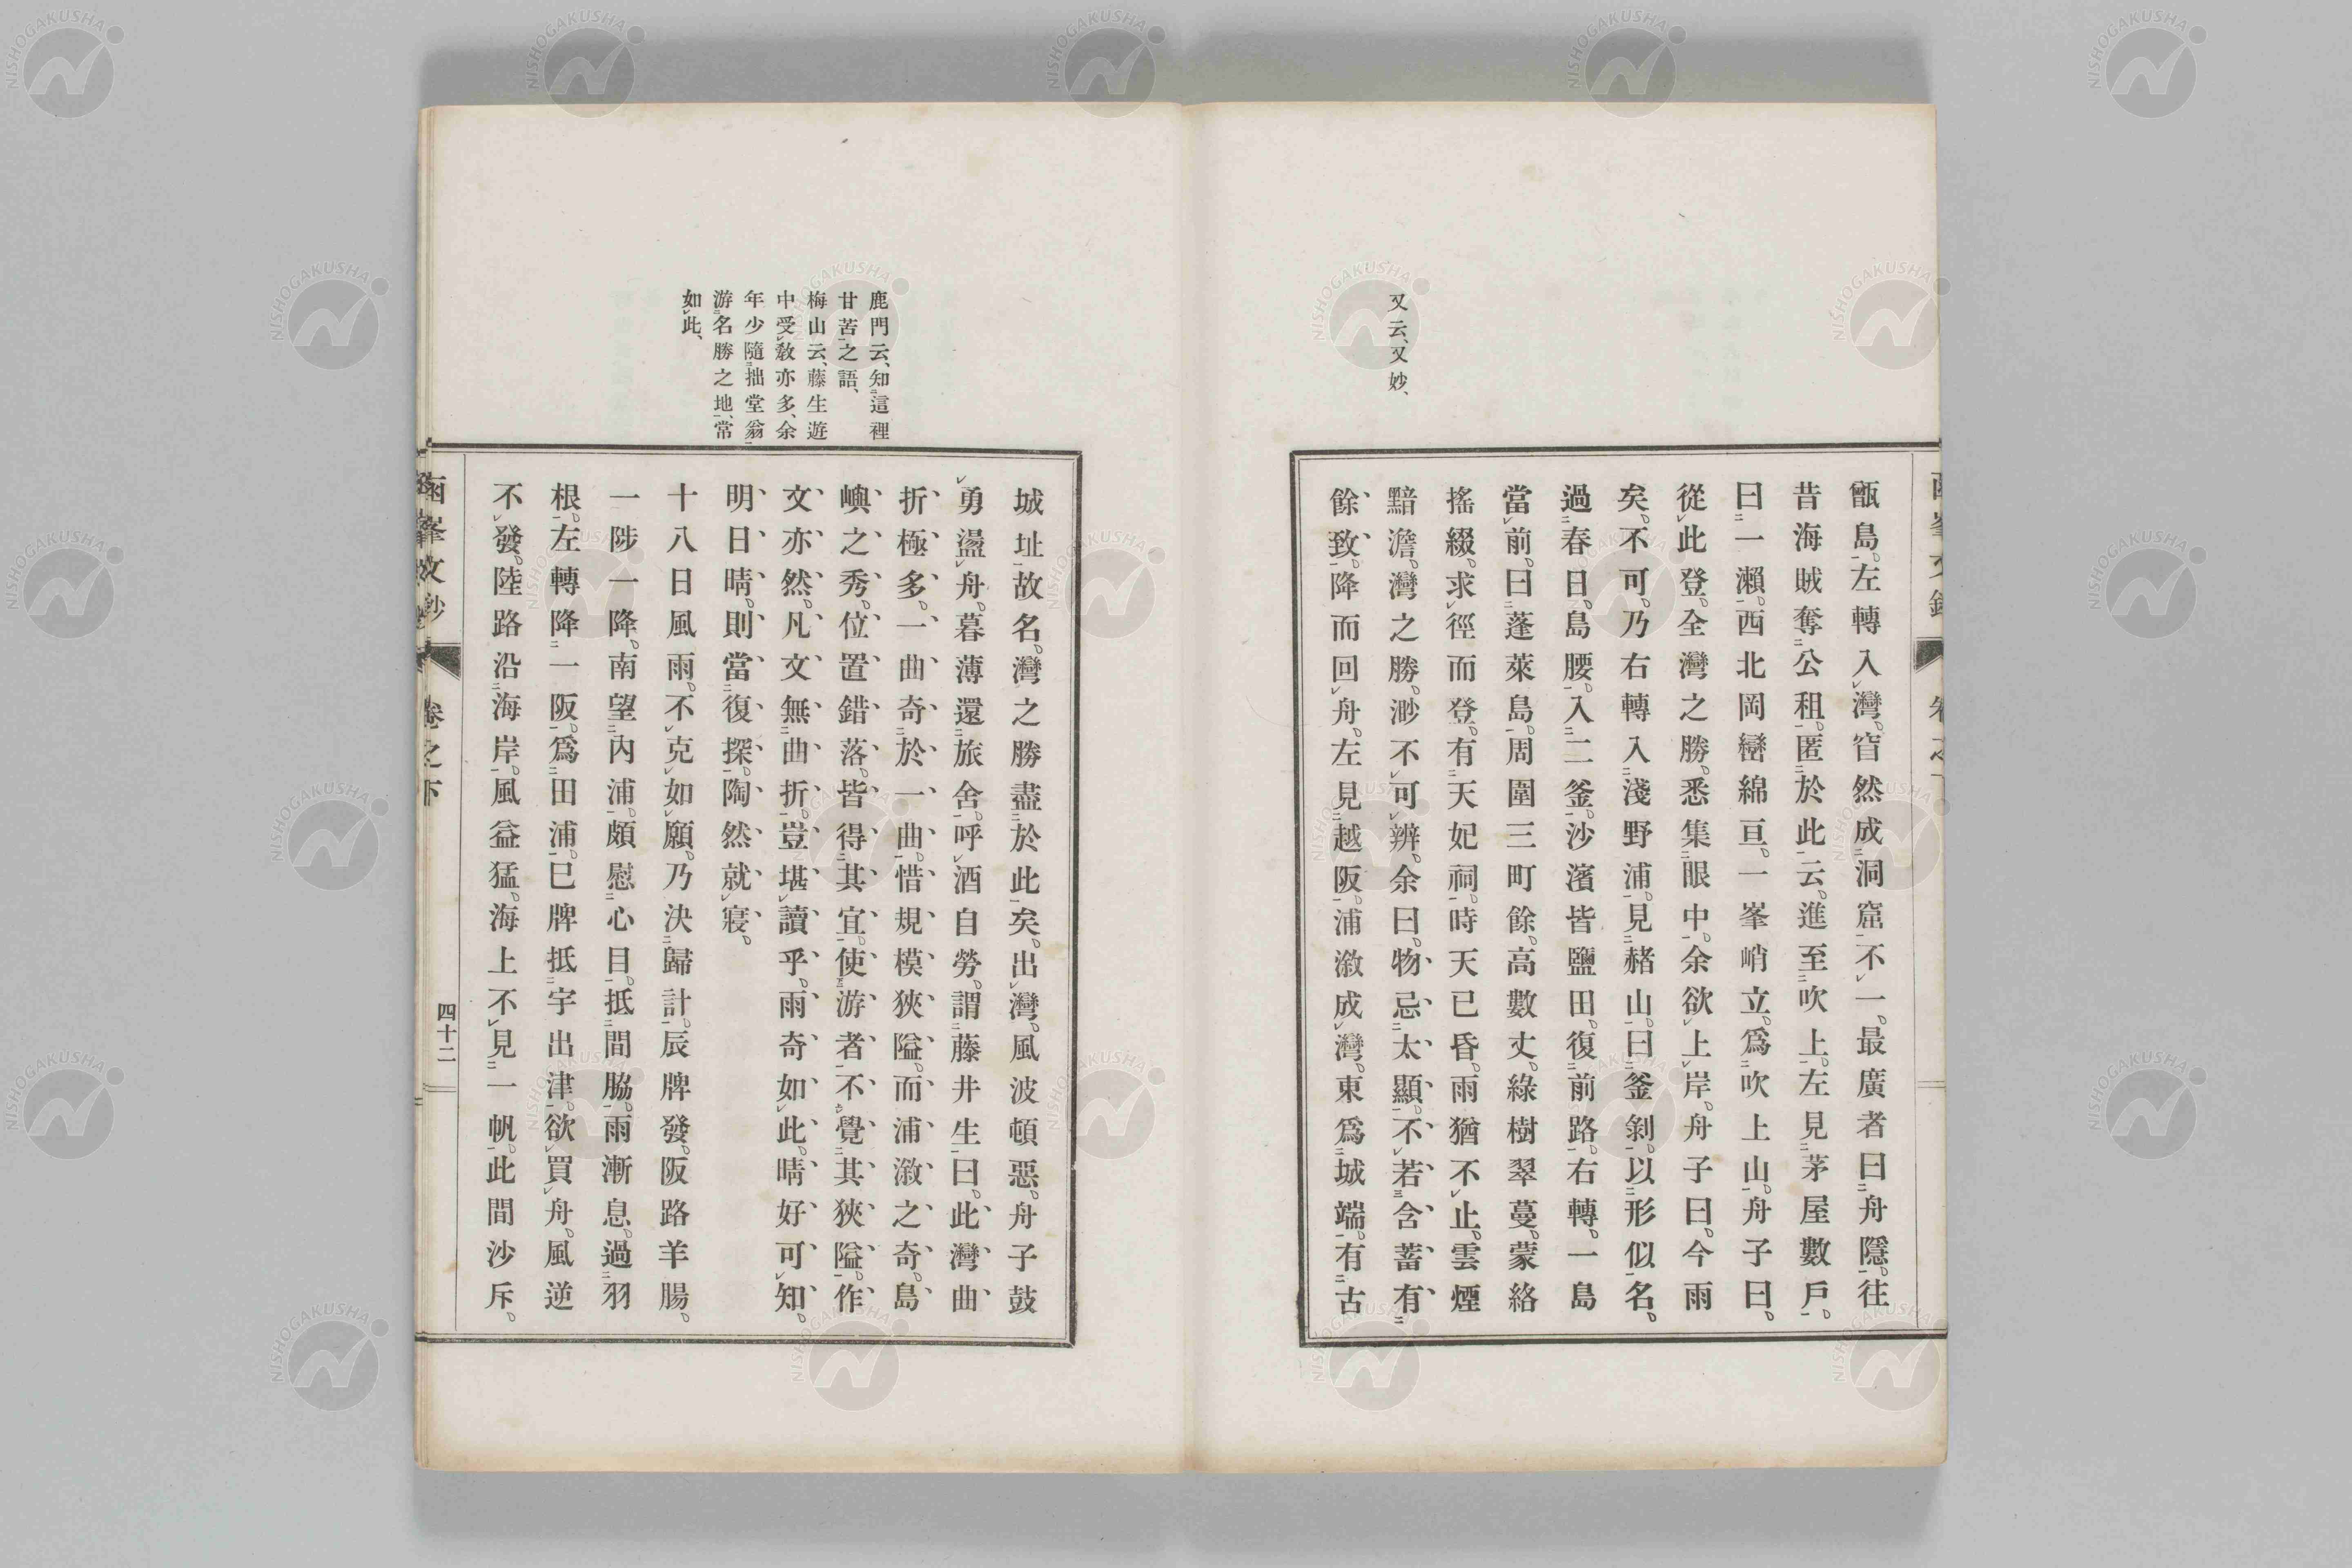 又云、又妙、
甑島。左轉入灣。窅然成洞窟不一。最廣者曰舟隱。往
昔海賊奪公租。匿於此云。進至吹上。左見茅屋數戶。
曰一瀨。西北岡巒綿亘。一峯峭立。爲吹上山。舟子曰。
從此登。全灣之勝。悉集眼中。余欲上岸。舟子曰。今雨
矣。不可。乃右轉入淺野浦。見赭山。曰釜剝。以形似名。
過春日島腰。入二釜。沙濱皆鹽田。復前路。右轉。一島
當前。曰蓬萊島。周圍三町餘。高數丈。綠樹翠蔓。蒙絡
搖綴。求徑而登。有天妃祠。時天已昏。雨猶不止。雲煙
黯澹。灣之勝。渺不可辨。余曰。物忌太顯。不若含蓄有
餘致。降而回舟。左見越阪。浦漵成灣。東爲城端。有古
鹿門云、知這裡
甘苦之語、
梅山云、藤生遊
中受敎亦多、余
年少隨拙堂翁
游名勝之地、常
如此、
城址。故名。灣之勝盡於此矣。出灣。風波頓惡。舟子鼓
勇盪舟。暮薄還旅舍。呼酒自勞。謂藤井生曰。此灣曲
折極多。一曲奇於一曲。惜規模狹隘。而浦漵之奇。島
嶼之秀。位置錯落。皆得其宜。使游者不覺其狹隘。作
文亦然。凡文無曲折。豈堪讀乎。雨奇如此。晴好可知。
明日晴。則當復探。陶然就寢。
十八日風雨。不克如願。乃決歸計。辰牌發。阪路羊腸。
一陟一降。南望內浦。頗慰心目。抵間脇。雨漸息。過羽
根。左轉降一阪。爲田浦。巳牌抵宇出津。欲買舟。風逆
不發。陸路沿海岸。風益猛。海上不見一帆。此間沙斥。
函峯文鈔
卷之下
四十二